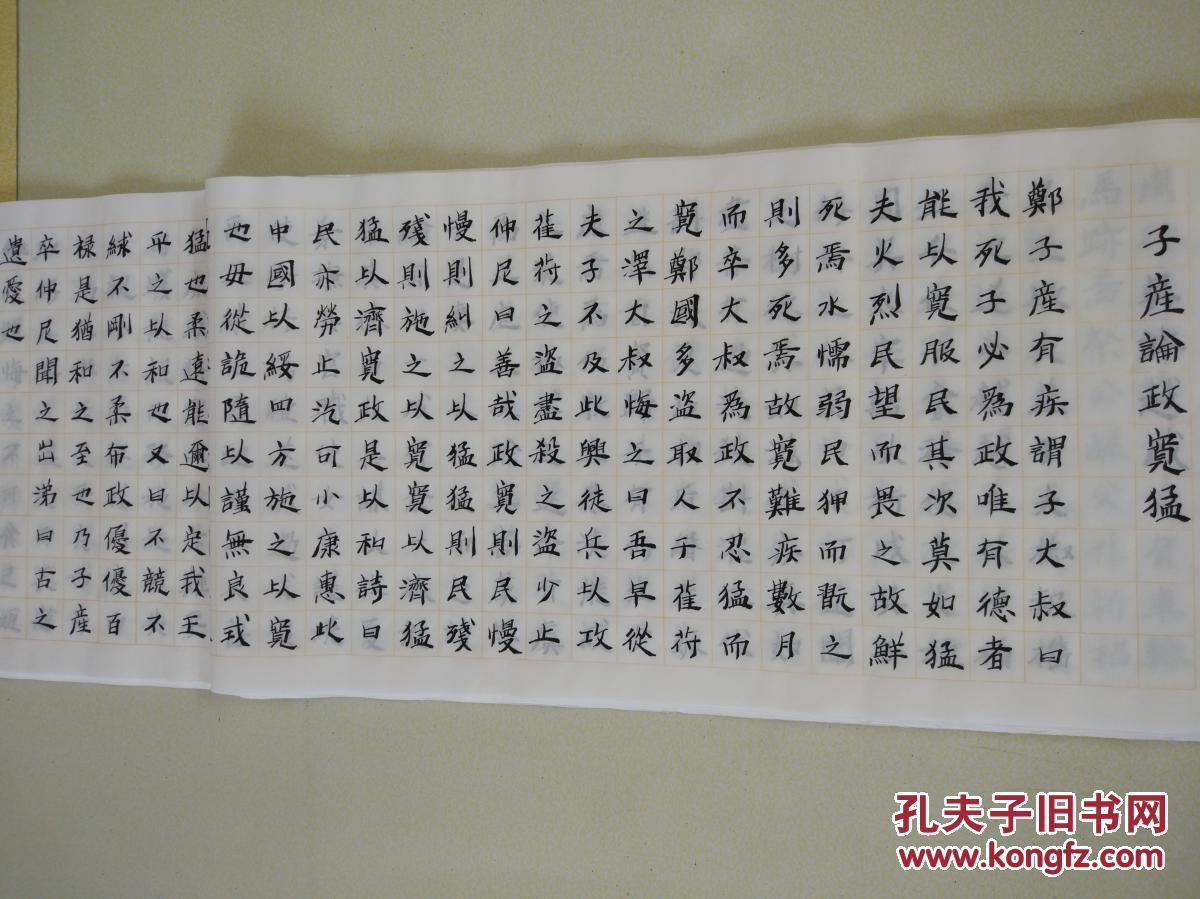 子産論政寬猛
鄭子産有疾謂子大叔曰
我死子必爲政唯有德者
能以寬服民其次莫如猛
夫火烈民望而畏之故鮮
死焉水懦弱民狎而翫之
則多死焉故寬難疾數月
而卒大叔爲政不忍猛而
寬鄭國多盜取人于萑苻
之澤大叔悔之曰吾早從
夫子不及此興徒兵以攻
萑苻之盜盡殺之盜少止
仲尼曰善哉政寬則民慢
慢則糾之以猛猛則民殘
殘則施之以寬寬以濟猛
猛以濟寬政是以和詩曰
民亦勞止汔可小康惠此
中國以綏四方施之以寬
也毋從詭隨以謹無良式
猛也柔遠能邇以定我王
平之以和也又曰不競不
絿不剛不柔布政優優百
禄是猶和之至也乃子産
卒仲尼聞之出涕曰古之
遺愛也
孔夫子旧书网
www.kongfz.com